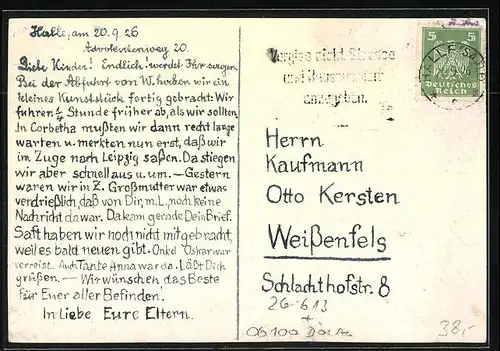 Halle, am 20.9.26
Advokatenweg 20.
Liebe Kinder! Endlich! werdet Ihr sagen.
Bei der Abfahrt von W. haben wir ein
kleines Kunststück fertig gebracht: Wir
fuhren 1/4 Stunde früher ab, als wir sollten.
In Corbetha mußten wir dann recht lange
warten u. merkten nun erst, daß wir
im Zuge nach Leipzig saßen. Da stiegen
wir aber schnell aus u. um. — Gestern
waren wir in Z. Großmutter war etwas
verdrießlich, daß von Dir, m. L., noch keine
Nachricht da war. Da kam gerade Dein Brief.
Saft haben wir noch nicht mitgebracht,
weil es bald neuen gibt. Onkel Oskar war
verreist. Auch Tante Anna war da. Läßt Dich
grüßen. — Wir wünschen das Beste
für Euer aller Befinden.
In Liebe Eure Eltern.
Vergiss nicht Strasse
und Hausnummer
anzugeben.
5 5
Deutsches
Reich
HALLE (SAALE)
Herrn
Kaufmann
Otto Kersten
Weißenfels
Schlachthofstr. 8
26-613
+
06100
38,-